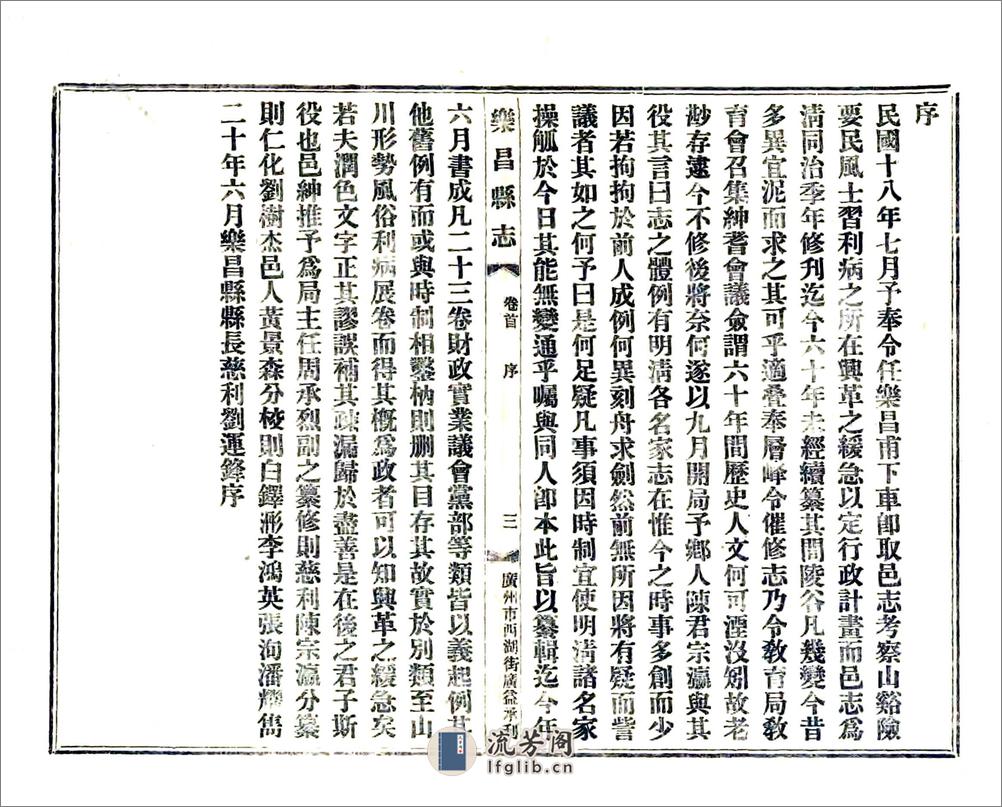 序
民國十八年七月予奉令任樂昌甫下車卽取邑志考察山谿險
要民風士習利病之所在興革之緩急以定行政計畫而邑志爲
淸同治季年修刋迄今六十年未經續纂其間陵谷凡幾變今昔
多異宜泥而求之其可乎適叠奉層峰令催修志乃令敎育局敎
育會召集紳耆會議僉謂六十年間歷史人文何可湮沒矧故老
尠存逮今不修後將奈何遂以九月開局予鄉人陳君宗瀛與其
役其言曰志之體例有明淸各名家志在惟今之時事多創而少
因若拘拘於前人成例何異刻舟求劍然前無所因將有疑而訾
議者其如之何予曰是何足疑凡事須因時制宜使明淸諸名家
操觚於今日其能無變通乎囑與同人卽本此旨以纂輯迄今年
樂昌縣志
卷首
序
三
廣州市西湖街廣益承刋
六月書成凡二十三卷財政實業議會黨部等類皆以義起例其
他舊例有而或與時制相鑿枘則删其目存其故實於別類至山
川形勢風俗利病展卷而得其概爲政者可以知興革之緩急矣
若夫潤色文字正其謬誤補其疎漏歸於盡善是在後之君子斯
役也邑紳推予爲局主任周承烈副之纂修則慈利陳宗瀛分纂
則仁化劉樹杰邑人黃景森分校則白鐸彤李鴻英張洵潘耀雋
二十年六月樂昌縣縣長慈利劉運鋒序
流芳阁
lfglib.cn